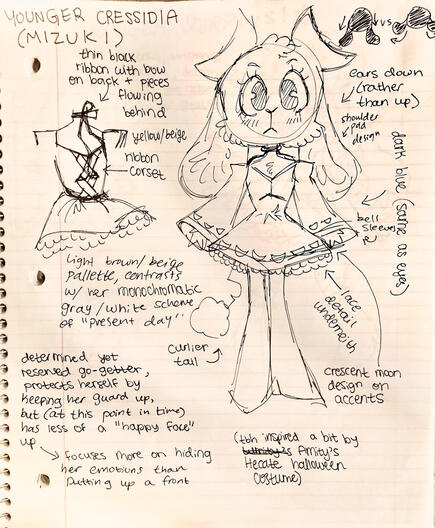 YOUNGER CRESSIDIA
(MIZUKI)
thin black
ribbon with bow
on back + pieces
flowing
behind
yellow/beige
ribbon
corset
light brown/beige
pallette, contrasts
w/ her monochromatic
gray/white scheme
of "present day"
curlier
tail
determined yet
reserved go-getter,
protects herself by
keeping her guard up,
but (at this point in time)
has less of a "happy face"
up
focuses more on hiding
her emotions than
putting up a front
vs
ears down
(rather
than up)
shoulder
pad
design
dark blue (same as eyes)
bell
sleeves
lace
detail
underneith
crescent moon
design on
accents
(tbh inspired a bit by
Amity's
Hecate halloween
costume)